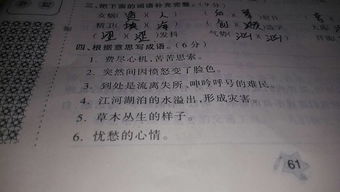 三.把下面的词语补充完整。(9分)
火锅( )( 人)
精卫(填)(海)
(湿)(湿)发抖 气势(汹)(汹)
四.根据意思写成语。(6分)
1. 费尽心机,苦苦思索。
2. 突然间因愤怒变了脸色。
3. 到处是流离失所、呻吟呼号的难民。
4. 江河湖泊的水溢出,形成灾害。
5. 草木丛生的样子。
6. 忧愁的心情。
61